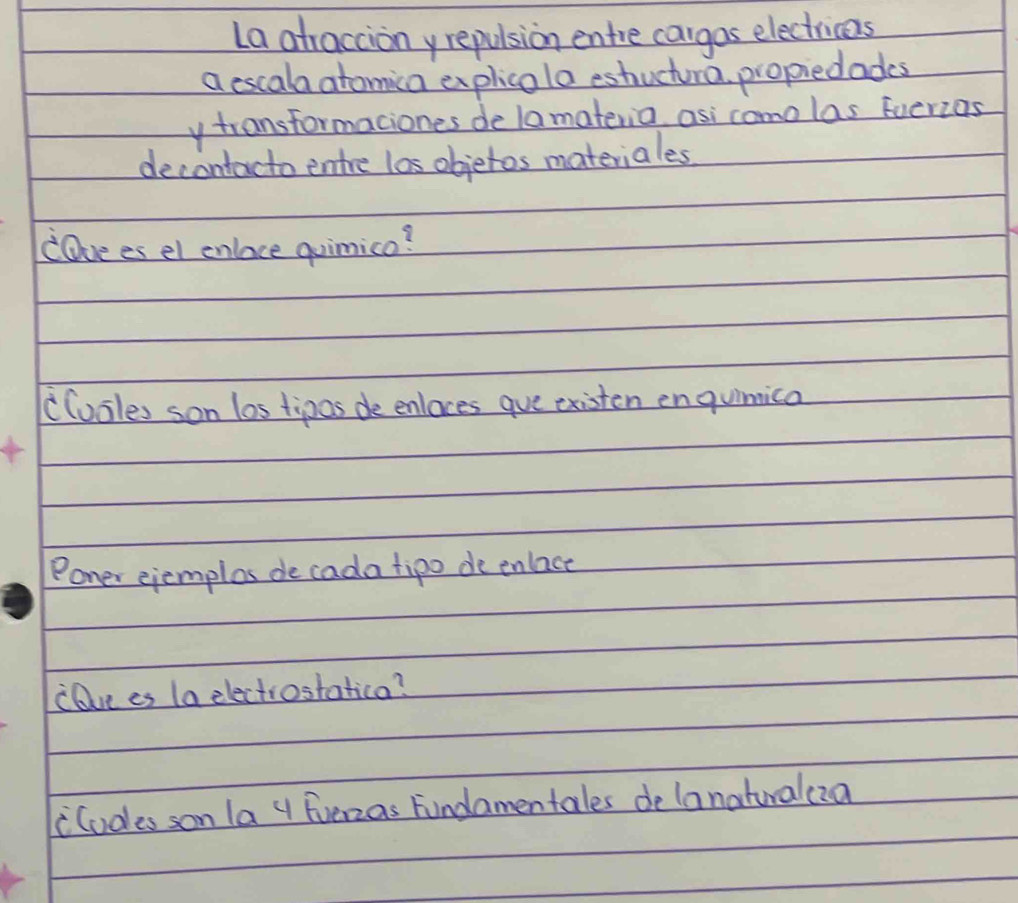 La atracción y repulsión entre cargas electricas
a escala atomica explica la estructura, propiedades
y transformaciones de la materia asi como las Fuerzas
de contacto entre los objetos materiales
¿Que es el enlace quimico?
¿Cuáles son los tipos de enlaces que existen en quimica
Poner ejemplos de cada tipo de enlace
¿Que es la electrostatica?
¿Cuales son la 4 fuerzas Fundamentales de la naturaleza